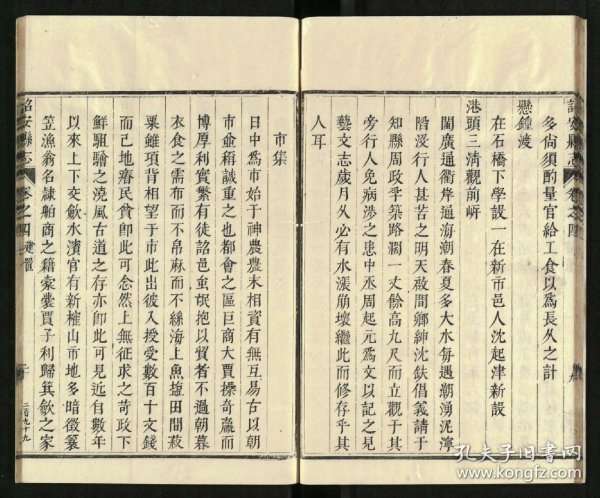 詔安縣志
卷之四
多尚須酌量官給工食以爲長久之計
懸鐘渡
在石橋下學設一在新市邑人沈起津新設
港頭三清觀前㟁
閩廣通衢岸通海潮春夏多大水每遇潮湧泥濘
陷沒行人甚苦之明天啟間鄉紳沈鈇倡義請于
知縣周政孚築路濶一丈餘高九尺而立觀于其
旁行人免病涉之患中丞周起元爲文以記之見
藝文志歲月久必有水漲崩壞繼此而修存乎其
人耳
市集
日中爲市始于神農農末相資有無互易古以朝
市並稱誠重之也都會之區巨商大賈操奇嬴而
博厚利實繁有徒詔邑蚩氓抱以貿者不過朝暮
衣食之需布而不帛麻而不絲海上魚鹽田間菽
粟雖項背相望于市此出彼入授受數百十文錢
而已地瘠民貧即此可念然上無征求之苛政下
鮮駔驓之澆風古道之存亦即此可見近自數年
以來上下交歛水濱官有新榷山市地多暗徵簑
笠漁翁名隸舶商之籍橐囊賈子利歸箕歛之家
詔安縣志
卷之四
建置
二百九十九
孔夫子旧书网
www.kongfz.com